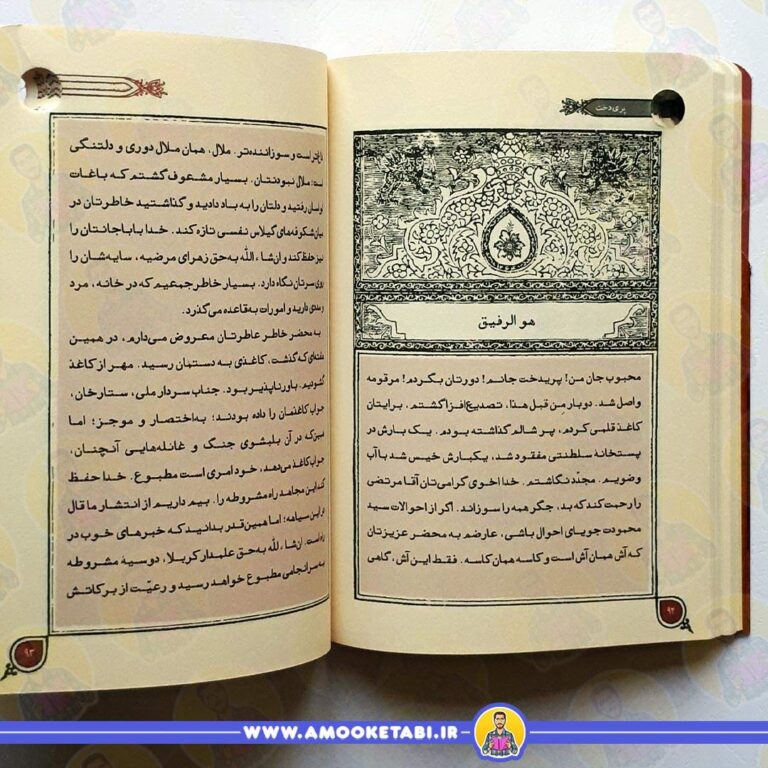 پری‌دخت
هو الرفیق
محبوب جان من! پریدخت جانم! دورتان بگردم! مرقومه
واصل شد. دوبار من قبل هذا، تصدیع افزا گشتم، برایتان
کاغذ قلمی کردم، پر شالم گذاشته بودم. یک بارش در
پستخانهٔ سلطنتی مفقود شد، یکبارش خیس شد با آب
وضویم. مجدّد نگاشتم. خدا اخوی گرامی‌تان آقا مرتضی
را رحمت کند که بد، جگر همه را سوزاند. اگر از احوالات سید
محمودت جویای احوال باشی، عارضم به محضر عزیزتان
که آش همان آش است و کاسه همان کاسه. فقط این آش، گاهی
۹۲
است و سوزاننده‌تر. ملال، همان ملال دوری و دلتنگی
است؛ ملال نبودنتان. بسیار مشعوف گشتم که باغات
رفتید و دلتان را به باد دادید و گذاشتید خاطرتان در
میان شکوفه‌های گیلاس نفسی تازه کند. خدا باباجانتان را
نیز حفظ کند و ان‌شاءالله به‌حق زهرای مرضیه، سایه‌شان را
روی سرتان نگاه دارد. بسیار خاطرجمعیم که در خانه، مرد
دارید و امورات به‌قاعده می‌گذرد.
به محضر خاطر عاطرتان معروض می‌دارم، در همین
هفته‌ای که گذشت، کاغذی به دستمان رسید. مهر از کاغذ
گشودیم. باورناپذیر بود. جناب سردار ملی، ستارخان،
جواب کاغذمان را داده بودند؛ به‌اختصار و موجز؛ اما
همین که در آن بلبشوی جنگ و غائله‌هایی آنچنان،
جواب کاغذ می‌دهد، خود امری است مطبوع. خدا حفظ
کند این مجاهد راه مشروطه را. بیم داریم از انتشار ما قال
در این سیاهه؛ اما همین‌قدر بدانید که خبرهای خوب در
راه است. ان‌شاءلله به‌حق علمدار کربلا، دوسیهٔ مشروطه
به سرانجامی مطبوع خواهد رسید و رعیّت از برکاتش
۹۳
WWW.AMOOKETABI.IR